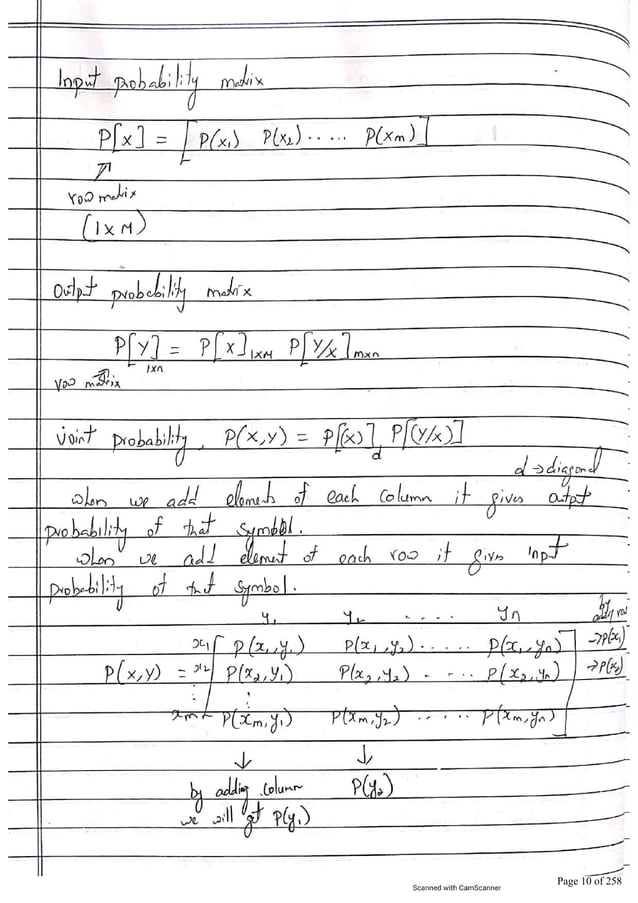 Input probability matrix
P[x] = [P(x₁) P(x₂) ..... P(xm)]
row matrix
(1xM)
Output probability matrix
P[Y]₁ₓₙ = P[x]₁ₓM P[Y/x]mxn
row matrix
joint probability, P(x,y) = P[(x)]d P[(Y/x)]
d → diagonal
when we add elements of each column it gives output
probability of that symbol.
when we add element of each row it gives input
probability of that symbol.
y₁ y₂ .... yn by adding row
x₁ P(x₁,y₁) P(x₁,y₂) ..... P(x₁,yn) → P(x₁)
P(x,y) = x₂ P(x₂,y₁) P(x₂,y₂) ..... P(x₂,yn) → P(x₂)
⋮ ⋮
xm P(xm,y₁) P(xm,y₂) ..... P(xm,yn)
↓ ↓
by adding column P(y₂)
we will get P(y₁)
Scanned with CamScanner
Page 10 of 258